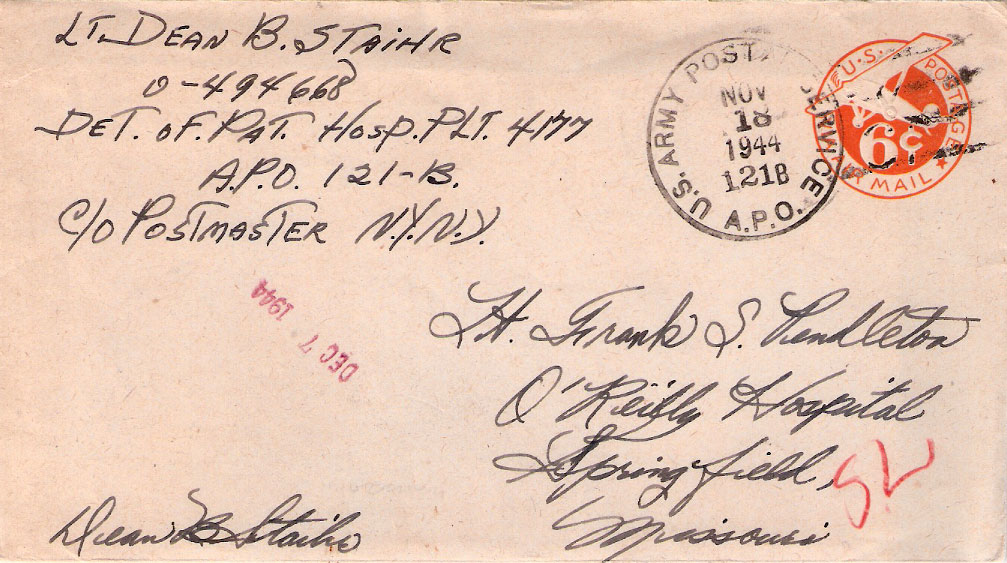 LT. DEAN B. STAIHR
O-494668
DET. OF. PAT. HOSP. PLT. 4177
A.P.O. 121-B.
C/O POSTMASTER N.Y.N.Y.
U.S. ARMY POSTAL SERVICE
NOV
18
1944
121B
A.P.O.
U.S. POSTAGE
6¢
AIR MAIL
DEC 7 1944
Lt. Frank S. Pendleton
O'Reilly Hospital
Springfield,
Missouri
Dean B Staihr